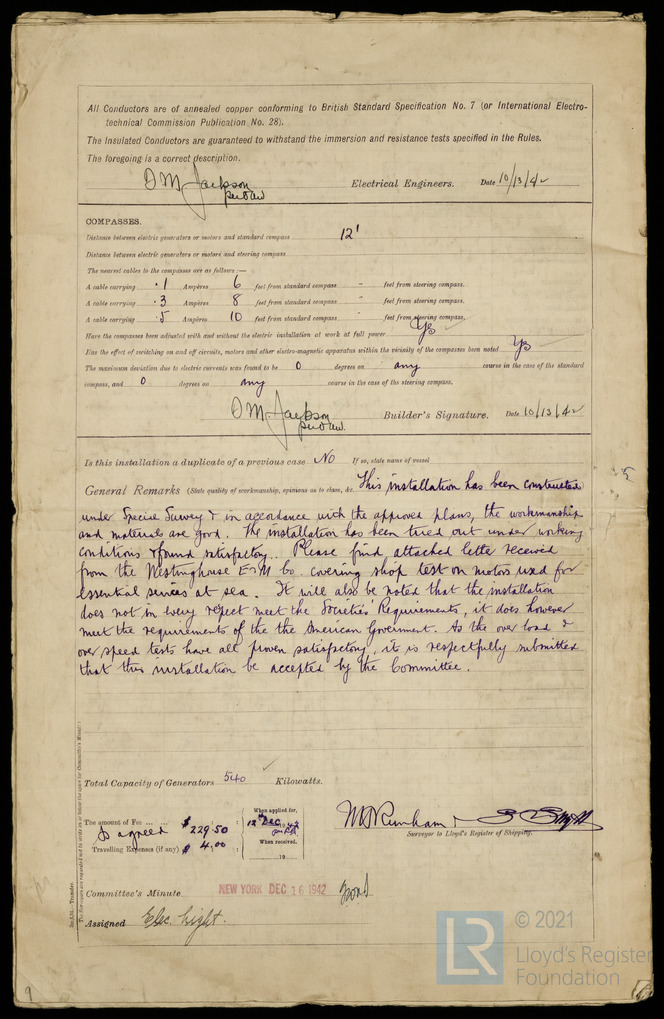 All Conductors are of annealed copper conforming to British Standard Specification No. 7 (or International Electro-
technical Commission Publication No. 28).
The Insulated Conductors are guaranteed to withstand the immersion and resistance tests specified in the Rules.
The foregoing is a correct description.
O M Jackson Electrical Engineers. Date 10/13/42
COMPASSES.
Distance between electric generators or motors and standard compass 12'
Distance between electric generators or motors and steering compass
The nearest cables to the compasses are as follows:—
A cable carrying .1 Ampères 6 feet from standard compass - feet from steering compass.
A cable carrying .3 Ampères 8 feet from standard compass - feet from steering compass.
A cable carrying .5 Ampères 10 feet from standard compass - feet from steering compass.
Have the compasses been adjusted with and without the electric installation at work at full power Yes
Has the effect of switching on and off circuits, motors and other electro-magnetic apparatus within the vicinity of the compasses been noted Yes
The maximum deviation due to electric currents was found to be 0 degrees on any course in the case of the standard
compass, and 0 degrees on any course in the case of the steering compass.
O M. Jackson Builder's Signature. Date 10/13/42
Is this installation a duplicate of a previous case No If so, state name of vessel
5
General Remarks (State quality of workmanship, opinions as to class, &c. This installation has been constructed
under Special Survey & in accordance with the approved plans, the workmanship
and materials are good. The installation has been tried out under working
conditions & found satisfactory. Please find attached letter received
from the Westinghouse E & M Co. covering shop test on motors used for
essential services at sea. It will also be noted that the installation
does not in every respect meet the Societies Requirements, it does however
meet the requirements of the the American Goverment. As the over load &
over speed tests have all proven satisfactory, it is respectfully submitted
that this installation be accepted by the Committee.
Total Capacity of Generators 540 Kilowatts.
The amount of Fee ... ... $ 229.50
As agreed
Travelling Expenses (if any) $ 4.00
When applied for,
12th DEC 1942
When received,
19
Surveyor to Lloyd's Register of Shipping.
Committee's Minute NEW YORK DEC 16 1942
Assigned Elec. Light.
Transfer.
9
LR
© 2021
Lloyd's Register
Foundation